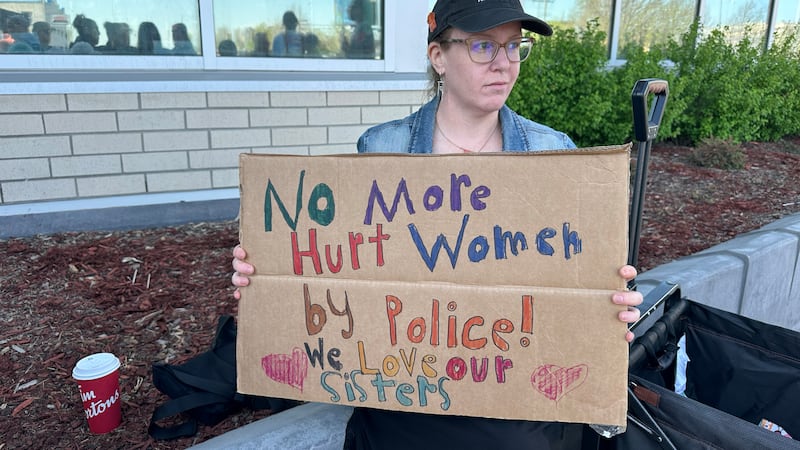 No More
Hurt Women
by Police!
We Love our
Sisters
Tim
Hortons